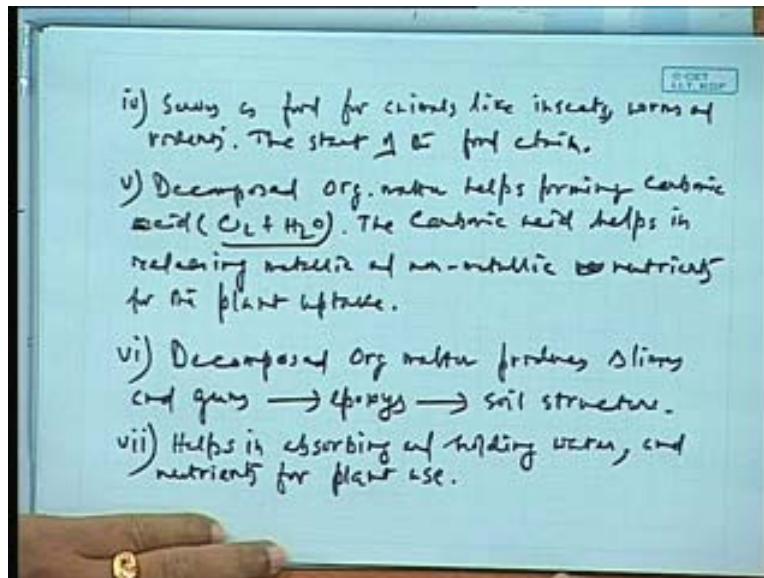 © CET
I.I.T. KGP
iv) Serves as food for animals like insects, worms and
rodents. The start of the food chain.
v) Decomposed Org. matter helps forming Carbonic
acid (CO2 + H2O). The Carbonic acid helps in
releasing metallic and non-metallic nutrients
for the plant uptake.
vi) Decomposed Org matter produces slimes
and gums → epoxys → soil structure.
vii) Helps in absorbing and holding water, and
nutrients for plant use.